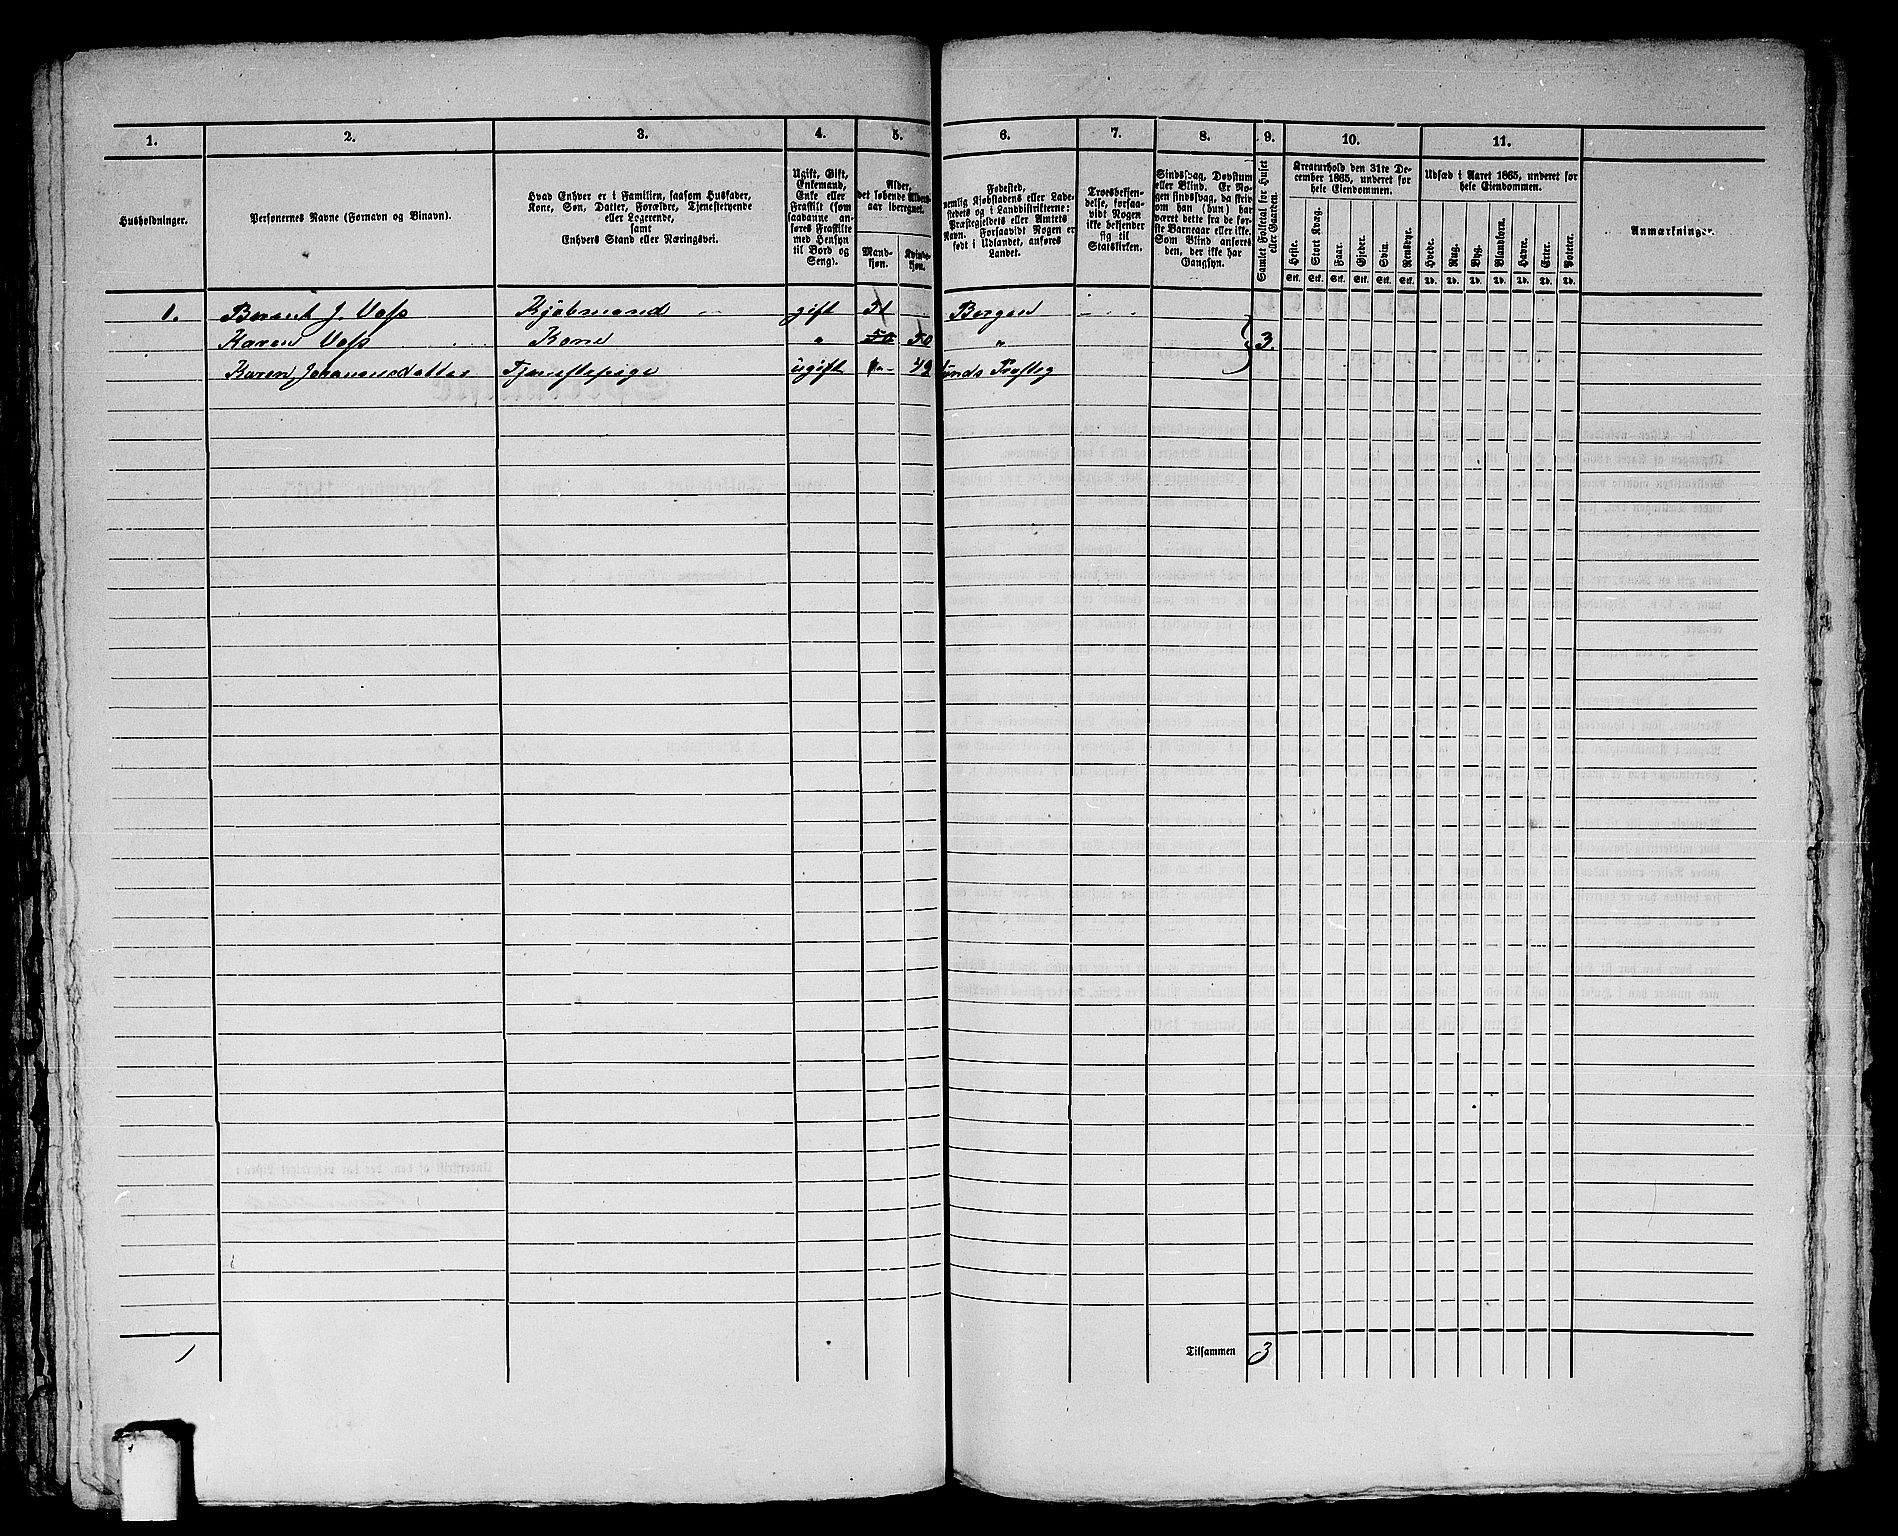 1. 2. 3. 4. 5. 6. 7. 8. 9. 10. 11.
Husholdninger.
Personernes Navne (Fornavn og Binavn).
Hvad Enhver er i Familien, saasom Husfader,
Kone, Søn, Datter, Forældre, Tjenestetyende
eller Logerende,
samt
Enhvers Stand eller Næringsvei.
Ugift, Gift,
Enkemand,
Enke eller
Fraskilt (som
saadanne an-
føres Fraskilte
med Hensyn
til Bord og
Seng).
Alder,
det løbende Alders-
aar iberegnet.
Mand-
kjøn.
Kvinde-
kjøn.
Fødested,
nemlig Kjøbstadens eller Lade-
stedets og i Landdistrikterne:
Præstegjeldets eller Amtets
Navn. Forsaavidt Nogen er
født i Udlandet, anføres
Landet.
Troesbekjen-
delse, forsaa-
vidt Nogen
ikke bekjender
sig til
Statskirken.
Sindssvag, Døvstum
eller Blind. Er No-
gen sindssvag, da skriv
om han (hun) har
været dette fra de før-
ste Barneaar eller ikke.
Som Blind anføres
den, der ikke har
Gangsyn.
Samlet Folketal for Huset
eller Gaarden.
Kreaturhold den 31te De-
cember 1865, underet for
hele Eiendommen.
Heste. Stort Kvæg. Faar. Gjeder. Svin. Rensdyr.
Stk. Stk. Stk. Stk. Stk. Stk.
Udsæd i Aaret 1865, underet for
hele Eiendommen.
Hvede. Rug. Byg. Blandkorn. Havre. Erter. Poteter.
Td. Td. Td. Td. Td. Td. Td.
Anmærkninger.
1. Berent J. Voss Kjøbmand gift 51 Bergen
Karen Voss Kone " 50 50 " 3.
Karen Johannesdatter Tjenestepige ugift 42 Præsteg
1 Tilsammen 3